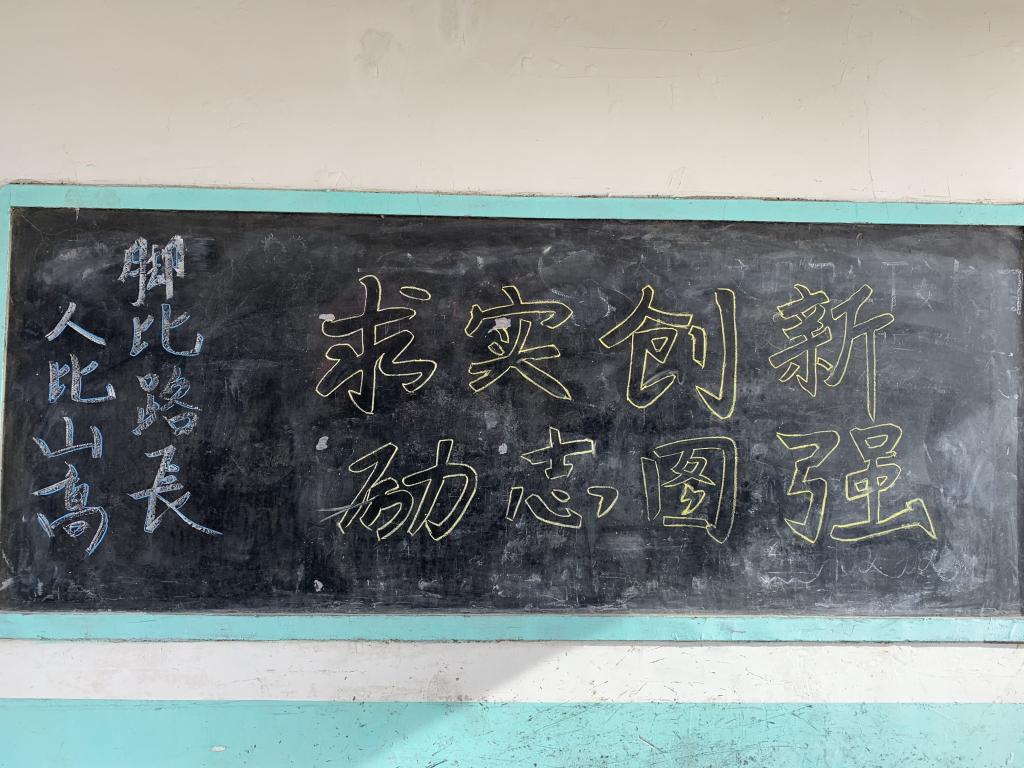 求实创新
励志图强
脚比路長
人比山高